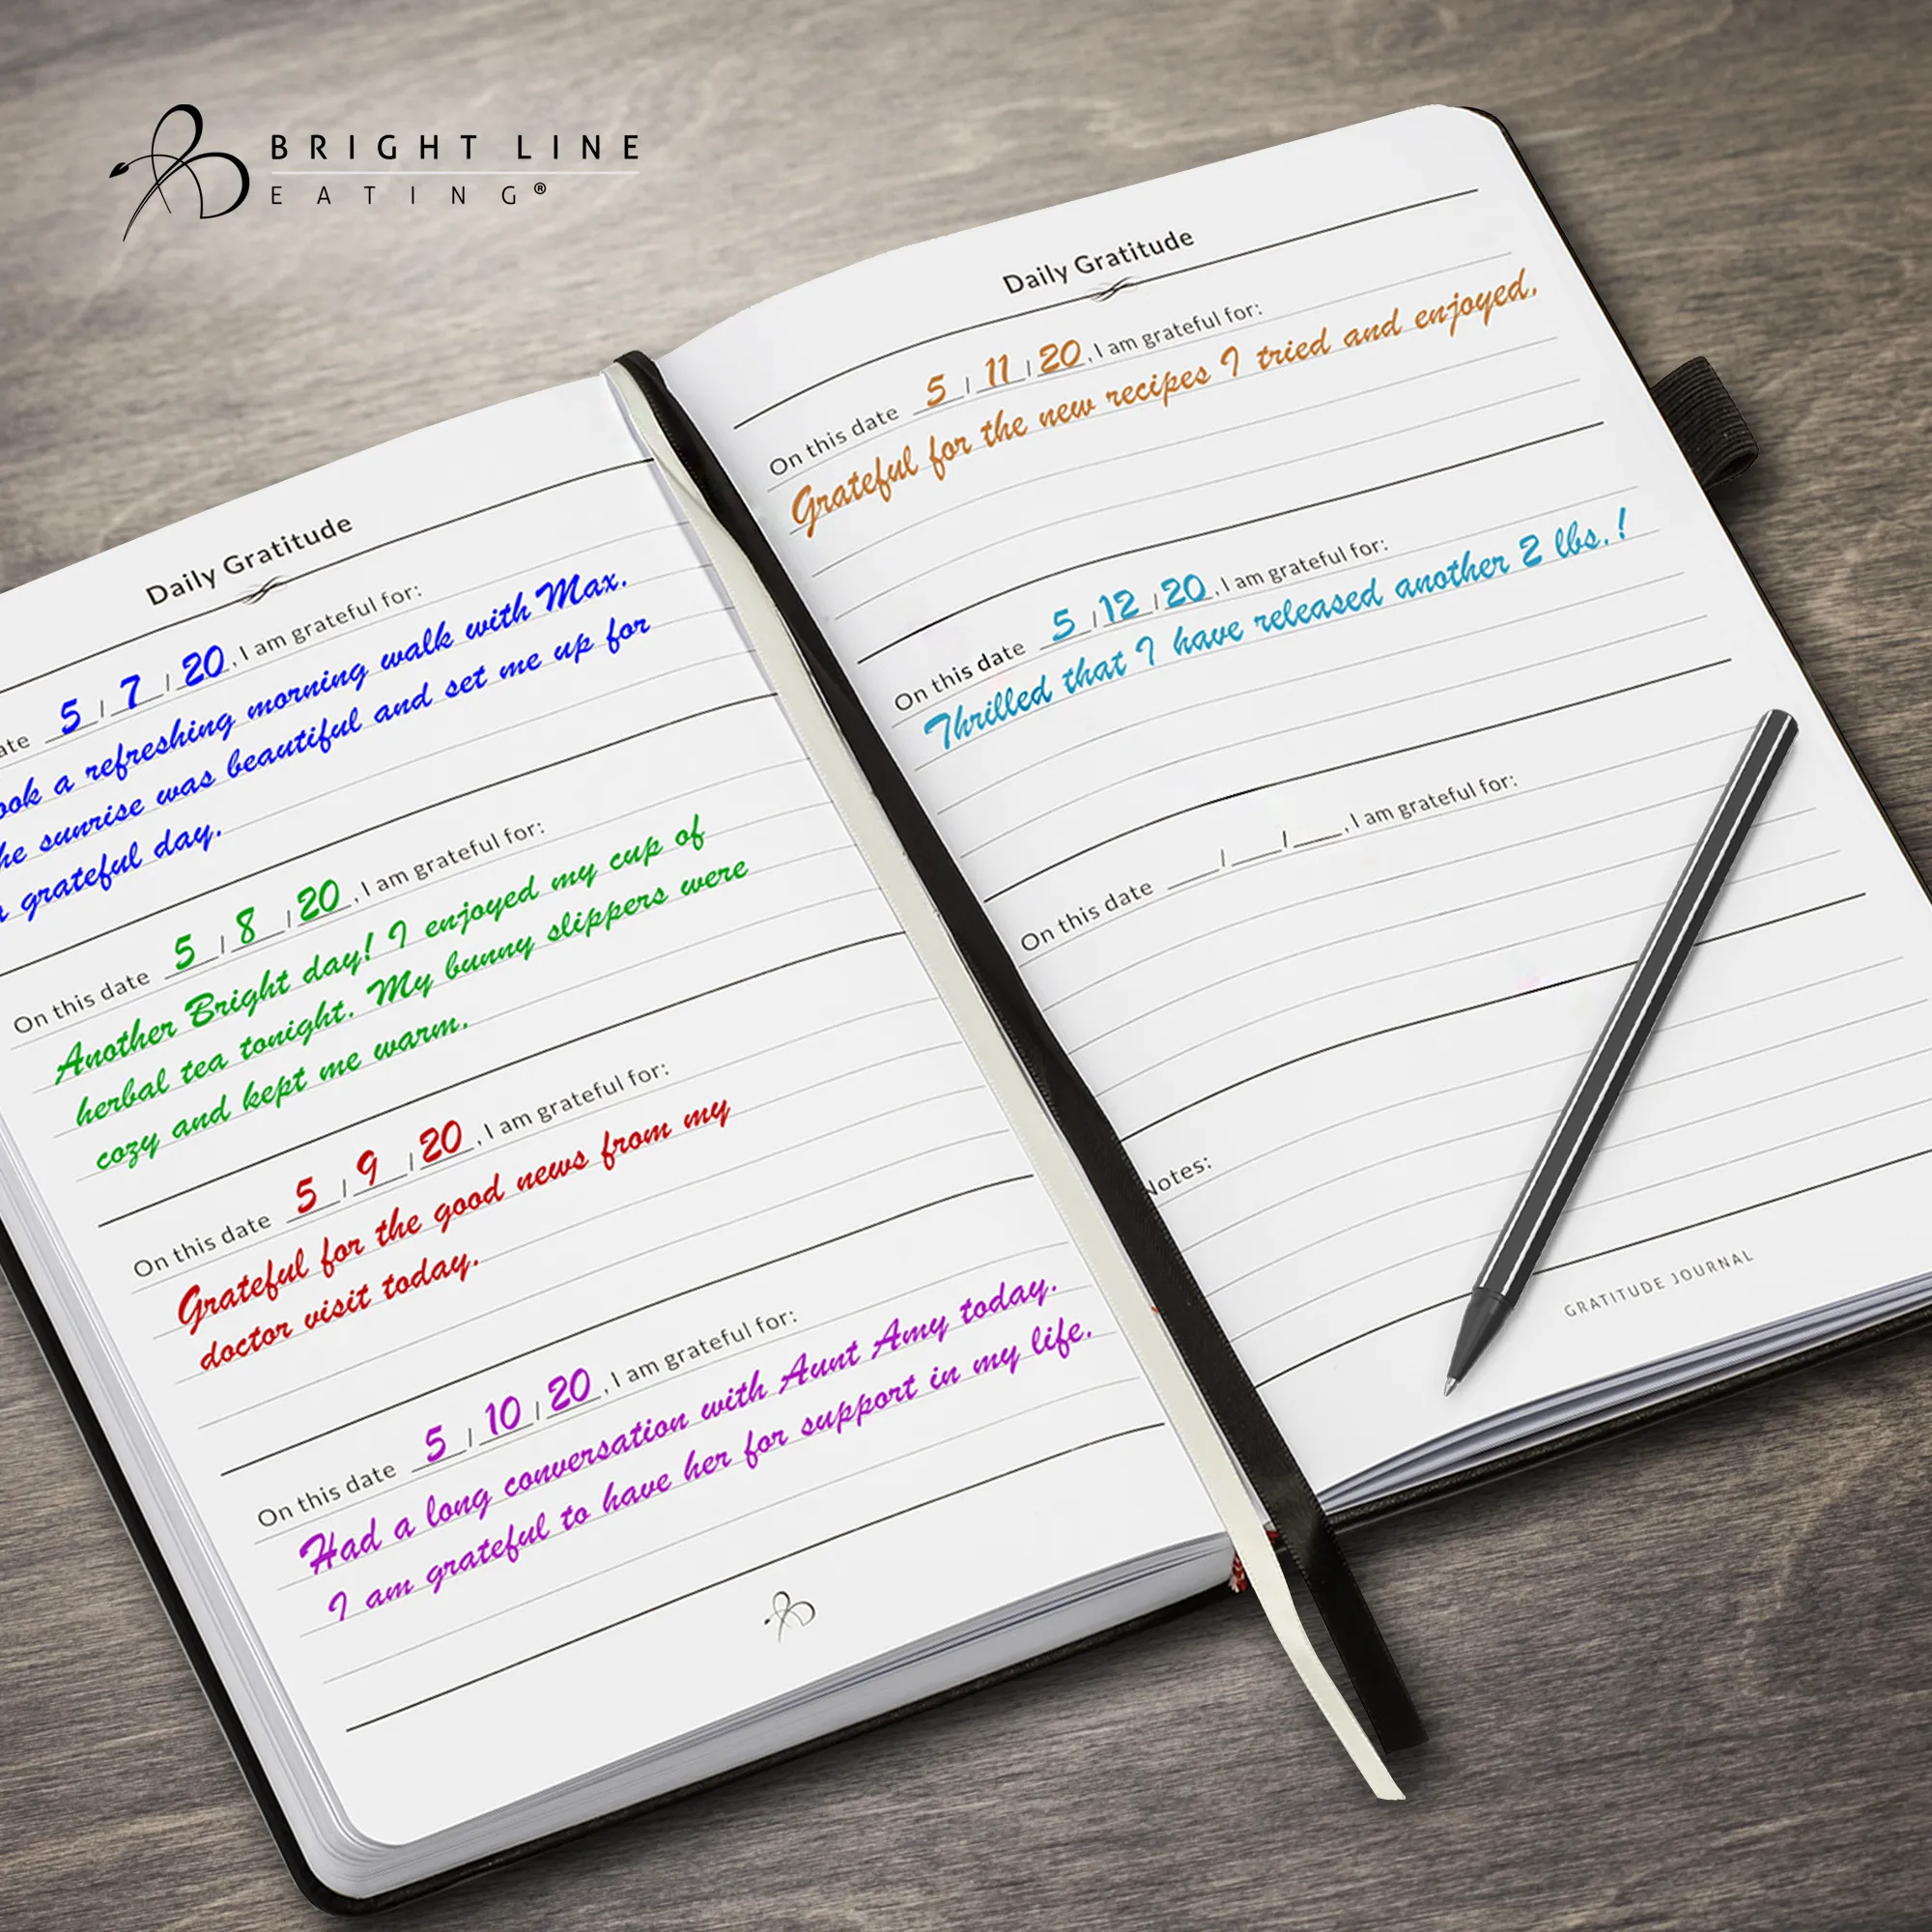 BRIGHT LINE
EATING®
Daily Gratitude
ate 5 / 7 / 20, I am grateful for:
ook a refreshing morning walk with Max.
he sunrise was beautiful and set me up for
a grateful day.
On this date 5 / 8 / 20, I am grateful for:
Another Bright day! I enjoyed my cup of
herbal tea tonight. My bunny slippers were
cozy and kept me warm.
On this date 5 / 9 / 20, I am grateful for:
Grateful for the good news from my
doctor visit today.
On this date 5 / 10 / 20, I am grateful for:
Had a long conversation with Aunt Amy today.
I am grateful to have her for support in my life.
Daily Gratitude
On this date 5 / 11 / 20, I am grateful for:
Grateful for the new recipes I tried and enjoyed.
On this date 5 / 12 / 20, I am grateful for:
Thrilled that I have released another 2 lbs.!
On this date ___/___/___, I am grateful for:
Notes:
GRATITUDE JOURNAL